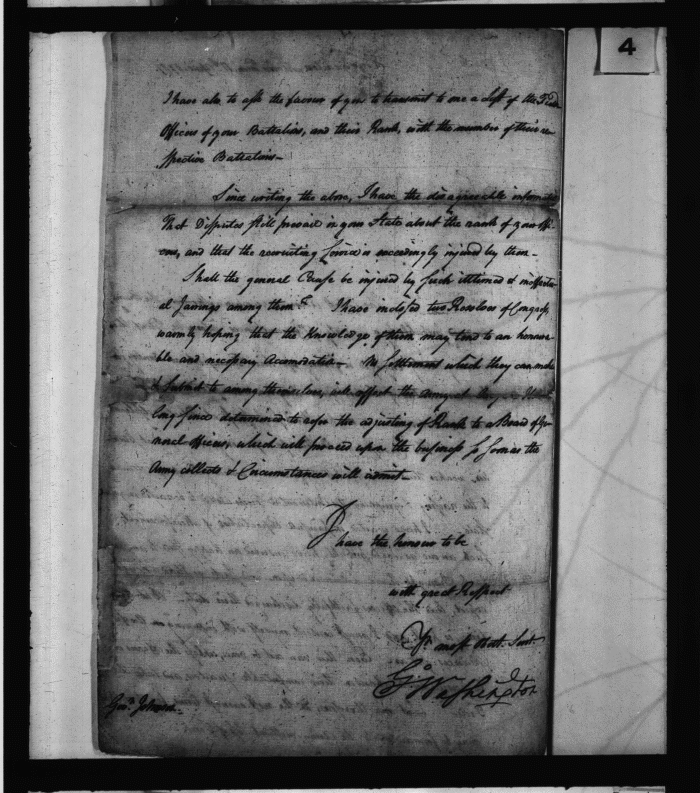 4
I have also to ask the favour of you to transmit to me a List of the Field
Officers of your Battalions, and their Rank, with the number of their re-
spective Battalions—
Since writing the above, I have the disagreeable
that Disputes still prevail in your State about the rank of your Offi-
cers, and that the recruiting Service is exceedingly injured by them—
Shall the general Cause be injured by such illtimed &
Jarrings among them? I have inclosed two Resolves of Congress,
warmly hoping that the Knowledge of them may tend to an honora-
ble and necessary Accomodation— No Settlement which they can make
& Submit to among themselves, will affect the Army at large. I have
long since determined to refer the adjusting of Rank to a Board of Ge-
neral officers, which will proceed upon the business so soon as the
Army collects & Circumstances will admit—
I have the honour to be
with great Respect
Yr most Obed. Servt
Go Washington
Govr Johnson—